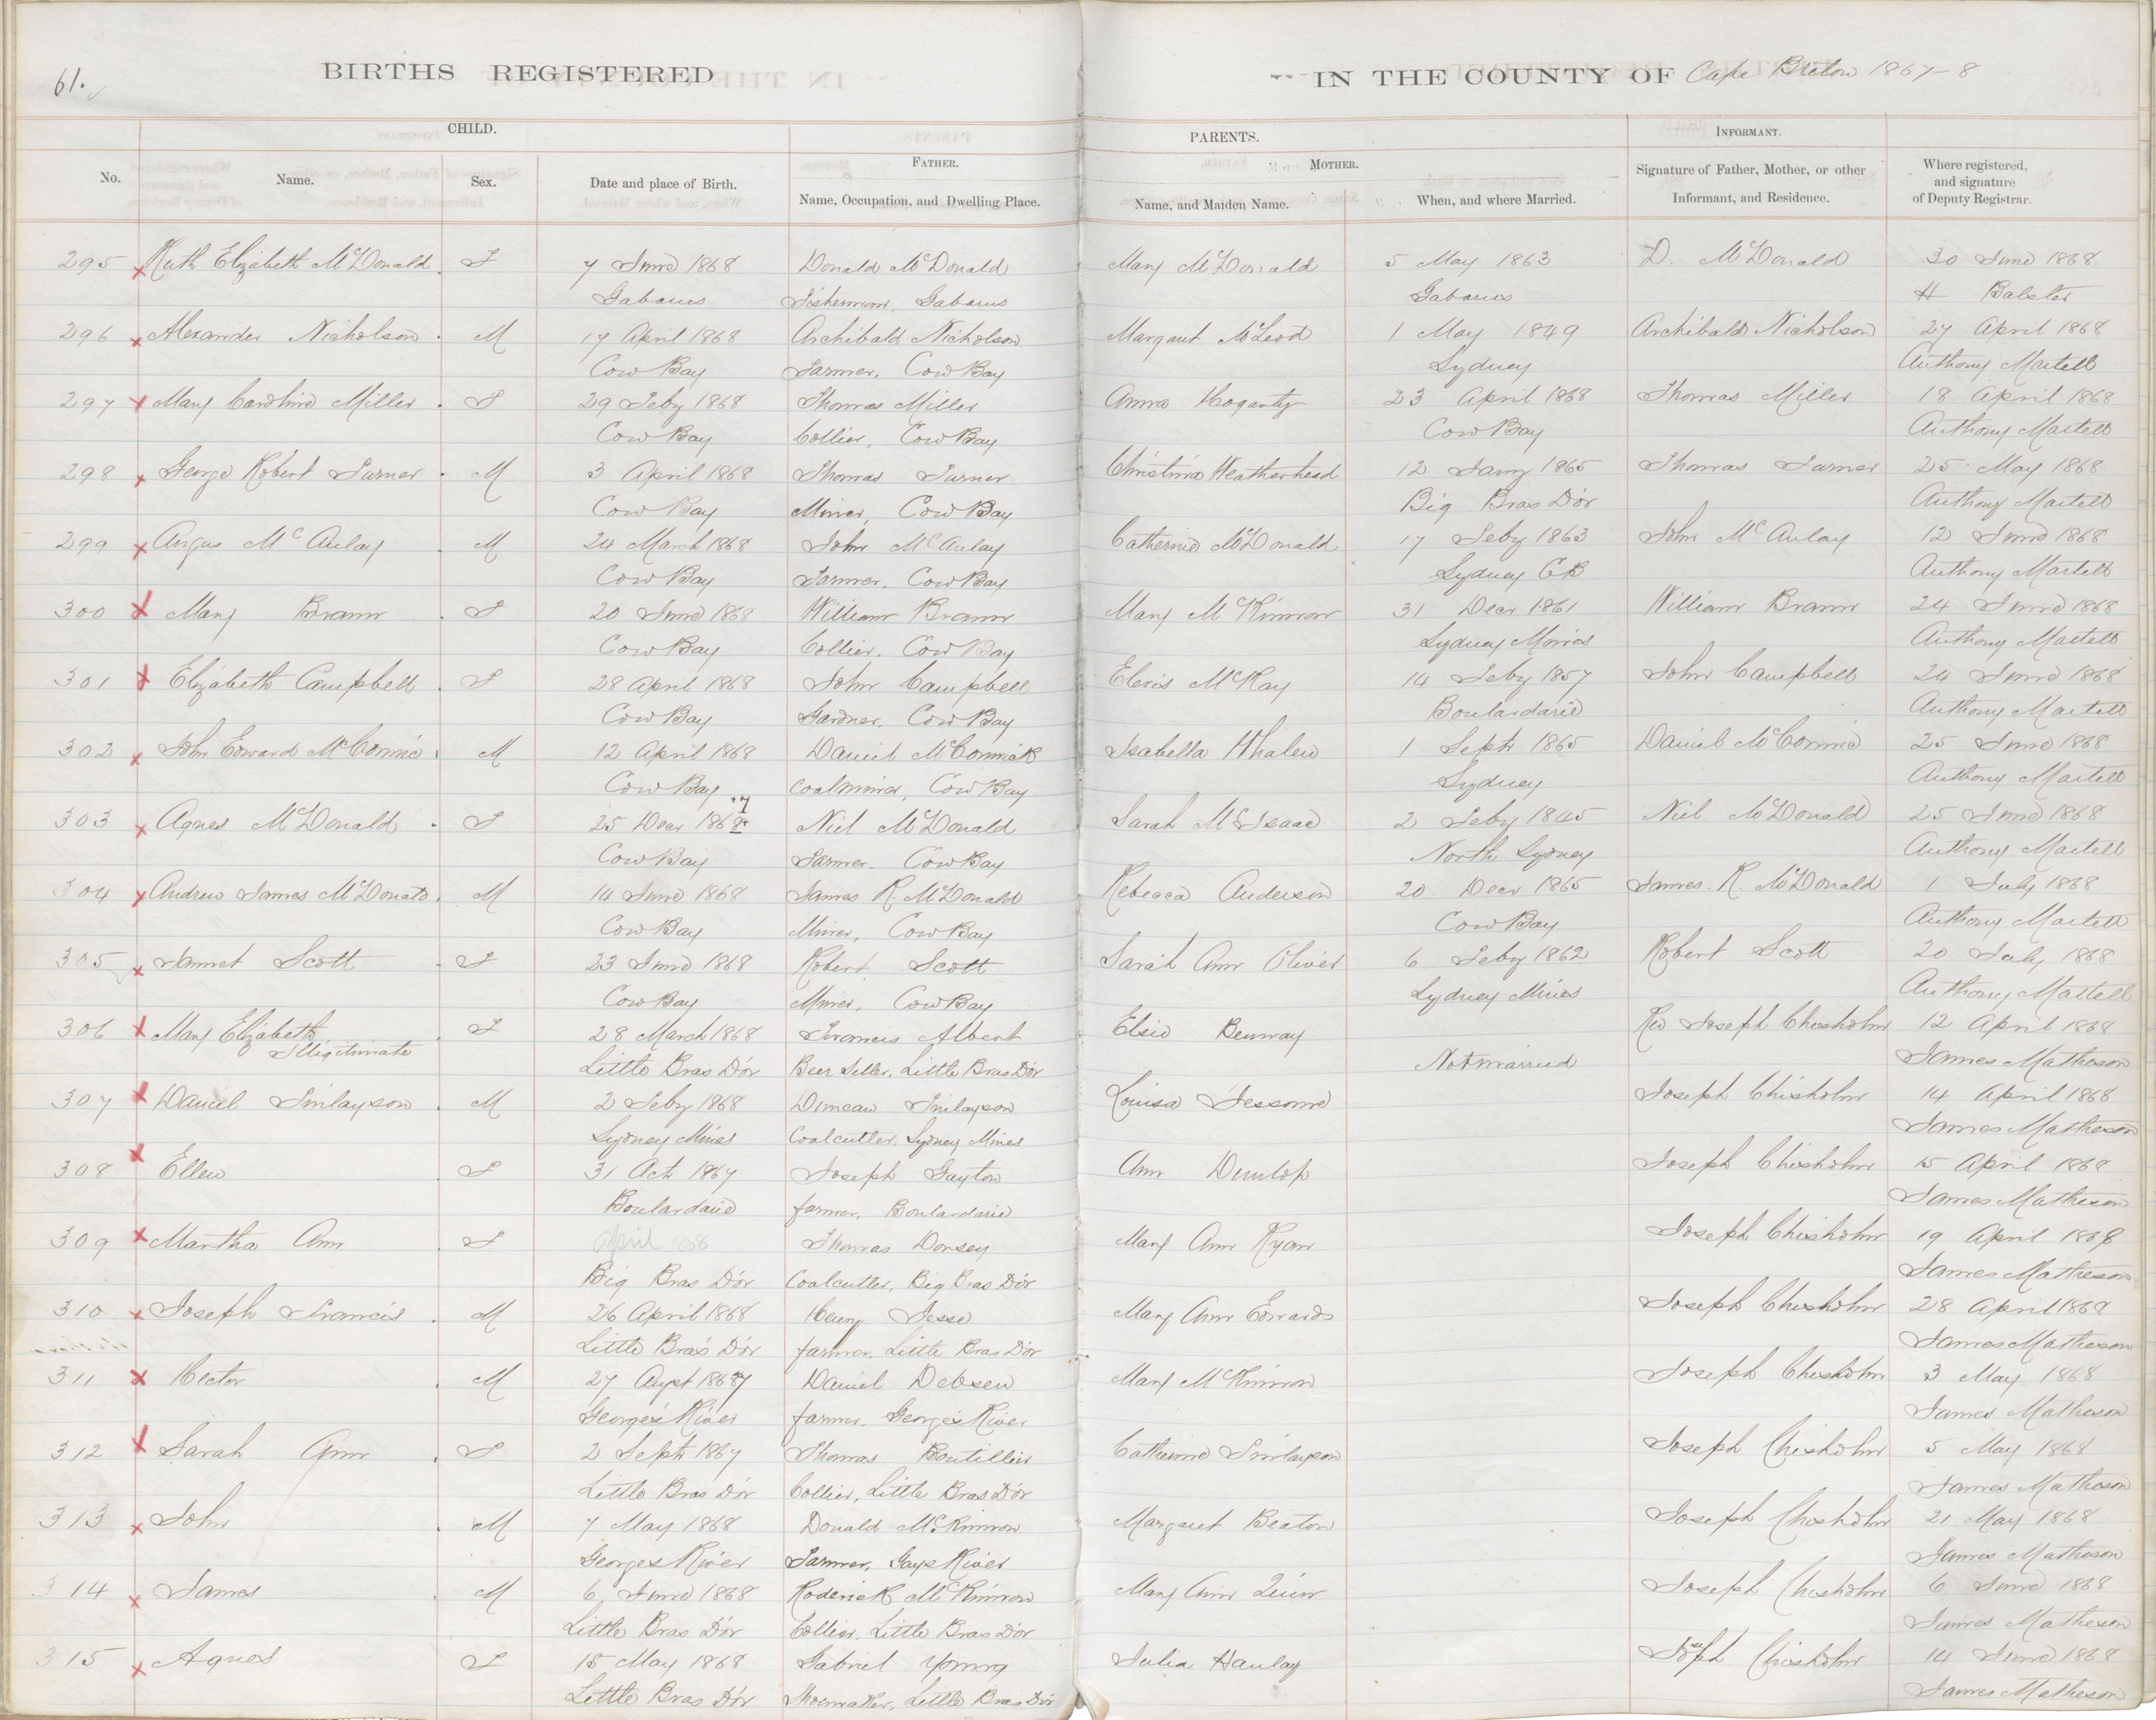 61.
BIRTHS REGISTERED IN THE COUNTY OF Cape Breton 1867-8
CHILD. PARENTS. INFORMANT.
No. Name. Sex. Date and place of Birth. FATHER. Name, Occupation, and Dwelling Place. MOTHER. Name, and Maiden Name. When, and where Married. Signature of Father, Mother, or other Informant, and Residence. Where registered, and signature of Deputy Registrar.
295 Ruth Elizabeth McDonald F 7 June 1868 Donald McDonald Mary McDonald 5 May 1863 D. McDonald 30 June 1868
Gabarus Fisherman, Gabarus Gabarus H Balster
296 Alexander Nicholson M 17 April 1868 Archibald Nicholson Margaret McLeod 1 May 1849 Archibald Nicholson 27 April 1868
Cow Bay Farmer, Cow Bay Sydney Anthony Martell
297 Mary Caroline Miller F 29 Feby 1868 Thomas Miller Anna Hogarty 23 April 1868 Thomas Miller 18 April 1868
Cow Bay Collier, Cow Bay Cow Bay Anthony Martell
298 George Robert Turner M 3 April 1868 Thomas Turner Christina Weatherhead 12 Jany 1865 Thomas Turner 25 May 1868
Cow Bay Miner, Cow Bay Big Bras D'or Anthony Martell
299 Angus McAulay M 24 March 1868 John McAulay Catherine McDonald 17 Feby 1863 John McAulay 12 June 1868
Cow Bay Farmer, Cow Bay Sydney CB Anthony Martell
300 Mary Brann F 20 June 1868 William Brann Mary McKinnon 31 Decr 1861 William Brann 24 June 1868
Cow Bay Collier, Cow Bay Sydney Mines Anthony Martell
301 Elizabeth Campbell F 28 April 1868 John Campbell McKay 14 Feby 1857 John Campbell 24 June 1868
Cow Bay Gardner, Cow Bay Boulardarie Anthony Martell
302 John Edward McCormic M 12 April 1868 Daniel McCormick Isabella Whalen 1 Septr 1865 Daniel McCormic 25 June 1868
Cow Bay Coalminer, Cow Bay Sydney Anthony Martell
303 Agnes McDonald F 25 Decr 1868 7 Niel McDonald Sarah McIsaac 2 Feby 1845 Niel McDonald 25 June 1868
Cow Bay Farmer, Cow Bay North Sydney Anthony Martell
304 Andrew James McDonald M 14 June 1868 James R. McDonald Rebecca Anderson 20 Decr 1865 James R. McDonald 1 July 1868
Cow Bay Miner, Cow Bay Cow Bay Anthony Martell
305 Jannet Scott F 23 June 1868 Robert Scott Sarah Ann Oliver 6 Feby 1862 Robert Scott 20 July 1868
Cow Bay Miner, Cow Bay Sydney Mines Anthony Martell
306 Mary Elizabeth F 28 March 1868 Francis Albert Elsie Benway Rev Joseph Chisholm 12 April 1868
Illigitimate Little Bras D'or Beer Seller, Little Bras D'or Not married James Matheson
307 Daniel Finlayson M 2 Feby 1868 Duncan Finlayson Louisa Jessome Joseph Chisholm 14 April 1868
Sydney Mines Coalcutter, Sydney Mines James Matheson
308 Ellen F 31 Oct 1867 Joseph Gayton Ann Dunlop Joseph Chisholm 15 April 1868
Boulardarie farmer, Boulardarie James Matheson
309 Martha Ann F April 1868 Thomas Dorsey Mary Ann Ryan Joseph Chisholm 19 April 1868
Big Bras D'or Coalcutter, Big Bras D'or James Matheson
310 Joseph Francis M 26 April 1868 Henry Jesso Mary Ann Edwards Joseph Chisholm 28 April 1868
Little Bras D'or farmer, Little Bras D'or James Matheson
311 Hector M 27 Augst 1867 Daniel Mary McKinnon Joseph Chisholm 3 May 1868
George's River farmer, George's River James Matheson
312 Sarah Ann F 2 Septr 1867 Thomas Boutillier Catherine Finlayson Joseph Chisholm 5 May 1868
Little Bras D'or Collier, Little Bras D'or James Matheson
313 John M 7 May 1868 Donald McKinnon Margaret Beaton Joseph Chisholm 21 May 1868
Georges River Farmer, Gays River James Matheson
314 James M 6 June 1868 Roderick McKinnon Mary Ann Quinn Joseph Chisholm 6 June 1868
Little Bras D'or Collier, Little Bras D'or James Matheson
315 Agnes F 15 May 1868 Gabriel Young Julia Hanlay Joseph Chisholm 14 June 1868
Little Bras D'or Shoemaker, Little Bras D'or James Matheson